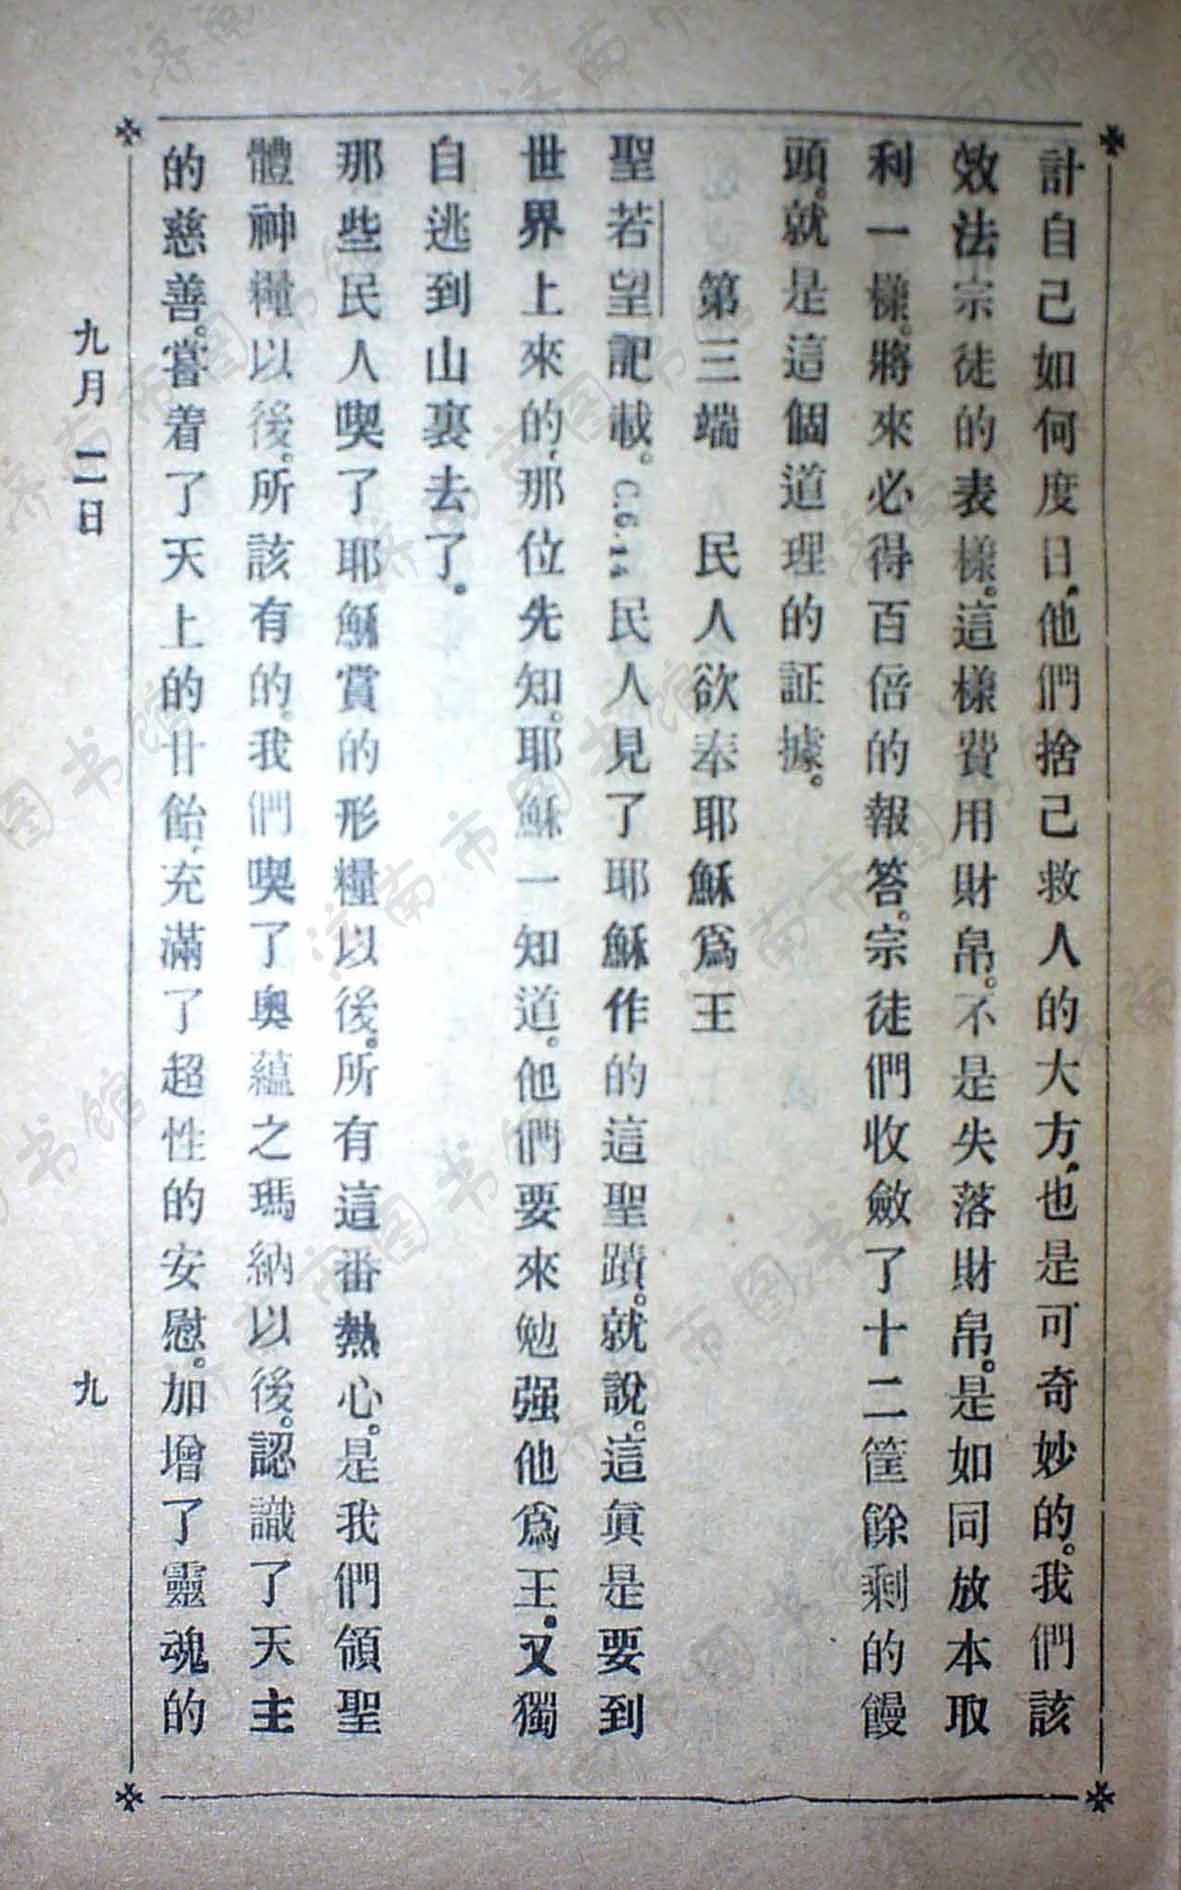 計自己如何度日、他們捨己救人的大方、也是可奇妙的。我們該
效法宗徒的表樣。這樣費用財帛。不是失落財帛。是如同放本取
利一樣。將來必得百倍的報答。宗徒們收斂了十二筐餘剩的饅
頭。就是這個道理的証據。
第三端　民人欲奉耶穌爲王
聖若望記載。C.6.14民人見了耶穌作的這聖蹟。就說。這眞是要到
世界上來的、那位先知。耶穌一知道。他們要來勉强他爲王。又獨
自逃到山裏去了。
那些民人喫了耶穌賞的形糧以後。所有這番熱心。是我們領聖
體神糧以後。所該有的。我們喫了奧蘊之瑪納以後。認識了天主
的慈善。嘗着了天上的甘飴、充滿了超性的安慰。加增了靈魂的
九月　二日　九
济南市图书馆